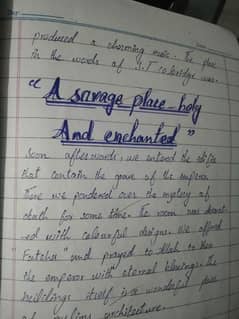 produced a charming music. The place
in the words of S.T Coleridge was.
"A savage place_holy
And enchanted"
Soon afterwords, we entered the edifice
that contain the grave of the emperor.
Here we pondered over the mystery of
death for some time. The room was decorat
-ed with colourful designs. We offered
"Fateha" and prayed to Allah to bless
the emperor with eternal blessings. The
buildings itself is a wonderful piece
of architecture.